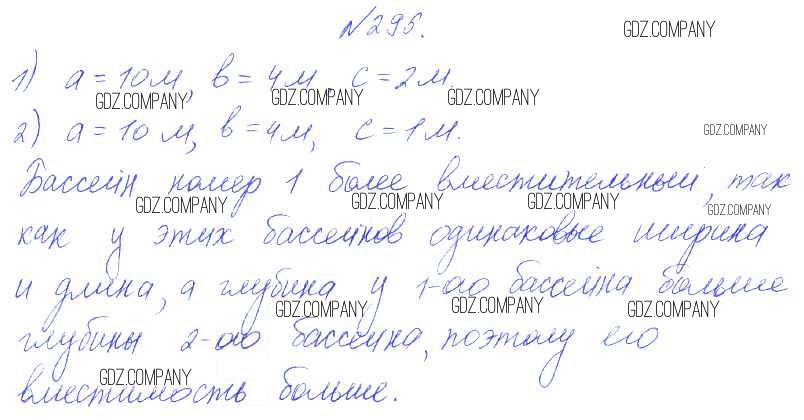 №295.
GDZ.COMPANY
1) a = 10 м, в = 4 м, с = 2 м.
GDZ.COMPANY GDZ.COMPANY GDZ.COMPANY
2) a = 10 м, в = 4 м, с = 1 м.
GDZ.COMPANY
Бассейн номер 1 более вместительный, так
GDZ.COMPANY GDZ.COMPANY GDZ.COMPANY GDZ.COMPANY
как у этих бассейнов одинаковые ширина
и длина, а глубина у 1-го бассейна больше
GDZ.COMPANY GDZ.COMPANY GDZ.COMPANY
глубины 2-го бассейна, поэтому его
GDZ.COMPANY
вместимость больше.